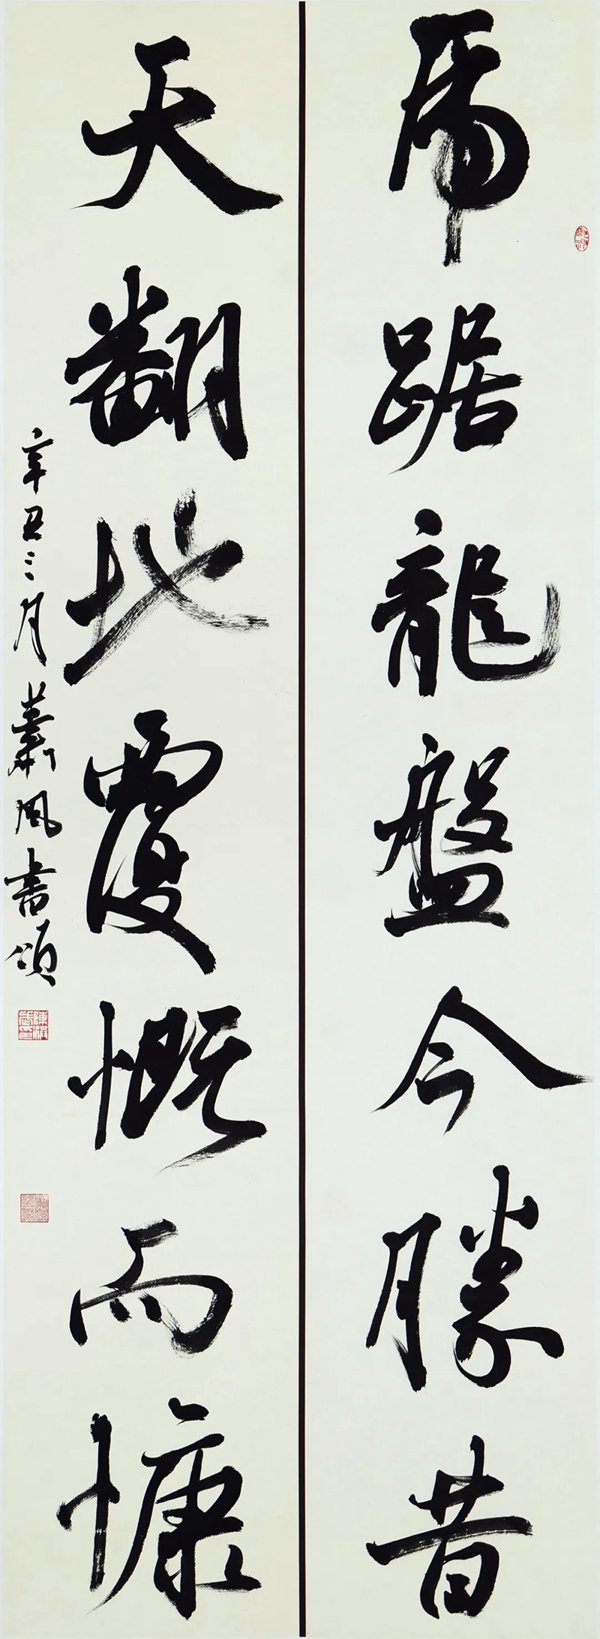 虎踞龍盤今勝昔
天翻地覆慨而慷
辛丑三月蕭風書頌